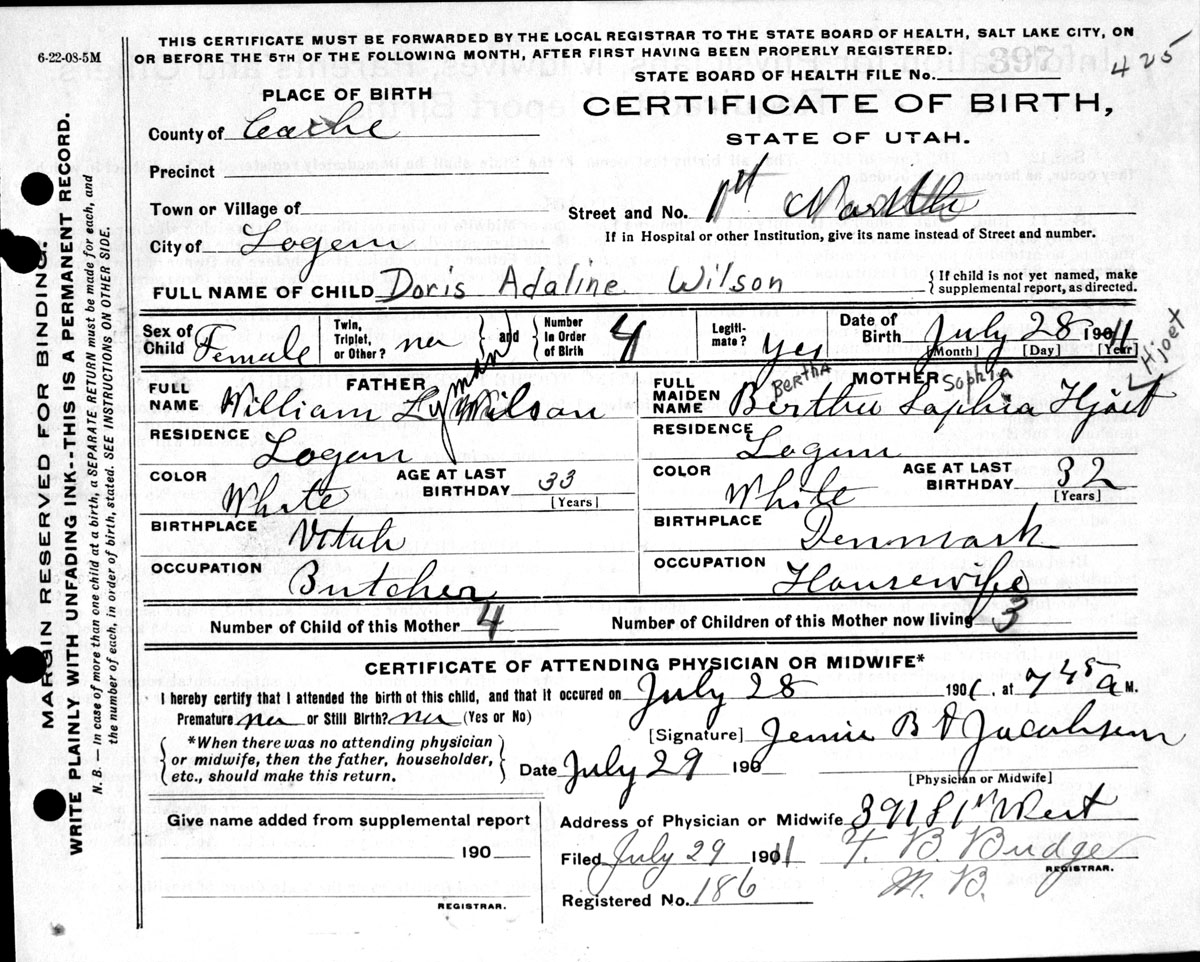 6-22-08-5M
THIS CERTIFICATE MUST BE FORWARDED BY THE LOCAL REGISTRAR TO THE STATE BOARD OF HEALTH, SALT LAKE CITY, ON
OR BEFORE THE 5TH OF THE FOLLOWING MONTH, AFTER FIRST HAVING BEEN PROPERLY REGISTERED.
STATE BOARD OF HEALTH FILE No. 425
PLACE OF BIRTH
CERTIFICATE OF BIRTH,
STATE OF UTAH.
County of Cache
Precinct
Town or Village of
Street and No. 1st North
City of Logan
If in Hospital or other Institution, give its name instead of Street and number.
FULL NAME OF CHILD Doris Adaline Wilson { If child is not yet named, make
supplemental report, as directed.
Sex of Child Female
Twin, Triplet, or Other? no } and { Number in Order of Birth 4
Legiti-mate? yes
Date of Birth July 28 1911
[Month] [Day] [Year]
FATHER
FULL NAME William Lyman Wilson
RESIDENCE Logan
COLOR White AGE AT LAST BIRTHDAY 33
[Years]
BIRTHPLACE Utah
OCCUPATION Butcher
MOTHER
Bertha Sophia Hjoet
FULL MAIDEN NAME Bertha Sophia Hjoet
RESIDENCE Logan
COLOR White AGE AT LAST BIRTHDAY 32
[Years]
BIRTHPLACE Denmark
OCCUPATION Housewife
Number of Child of this Mother 4 Number of Children of this Mother now living 3
CERTIFICATE OF ATTENDING PHYSICIAN OR MIDWIFE*
I hereby certify that I attended the birth of this child, and that it occured on July 28 1901, at 7 45 a M.
Premature no or Still Birth? no (Yes or No)
[Signature] Jennie B Jacobsen
{ *When there was no attending physician
or midwife, then the father, householder,
etc., should make this return. }
Date July 29 190
[Physician or Midwife]
Give name added from supplemental report
190
REGISTRAR.
Address of Physician or Midwife 391 S 1st West
Filed July 29 1911 T. B. Budge
REGISTRAR.
M. B.
Registered No. 186
MARGIN RESERVED FOR BINDING.
WRITE PLAINLY WITH UNFADING INK--THIS IS A PERMANENT RECORD.
N. B. — In case of more than one child at a birth, a SEPARATE RETURN must be made for each, and
the number of each, in order of birth, stated. SEE INSTRUCTIONS ON OTHER SIDE.